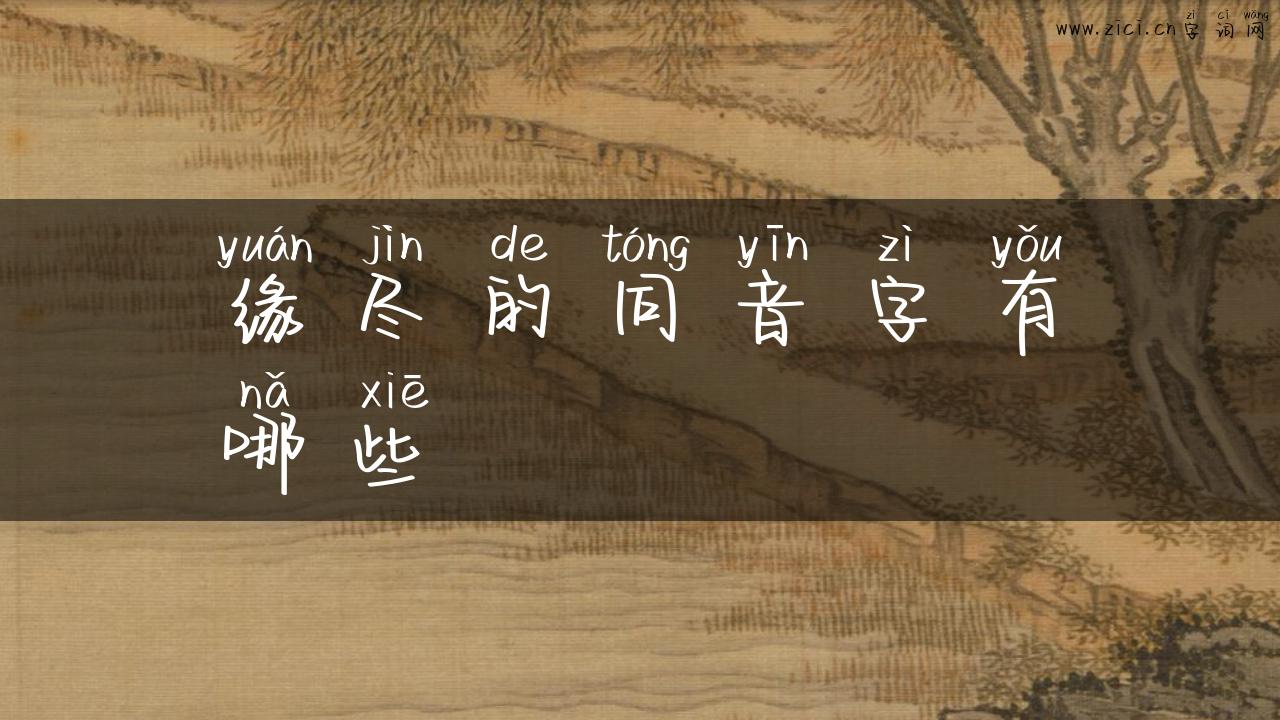 zì cí wǎng
www.zici.cn字词网
yuán jìn de tóng yīn zì yǒu
缘尽的同音字有
nǎ xiē
哪些